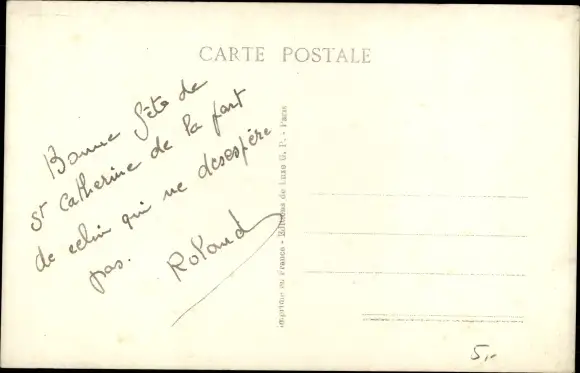 CARTE POSTALE
Bonne fête de
St Catherine de la part
de celui qui ne desespére
pas.
Roland
Imprimé en France - Editions de Luxe G. P. - Paris
5,-